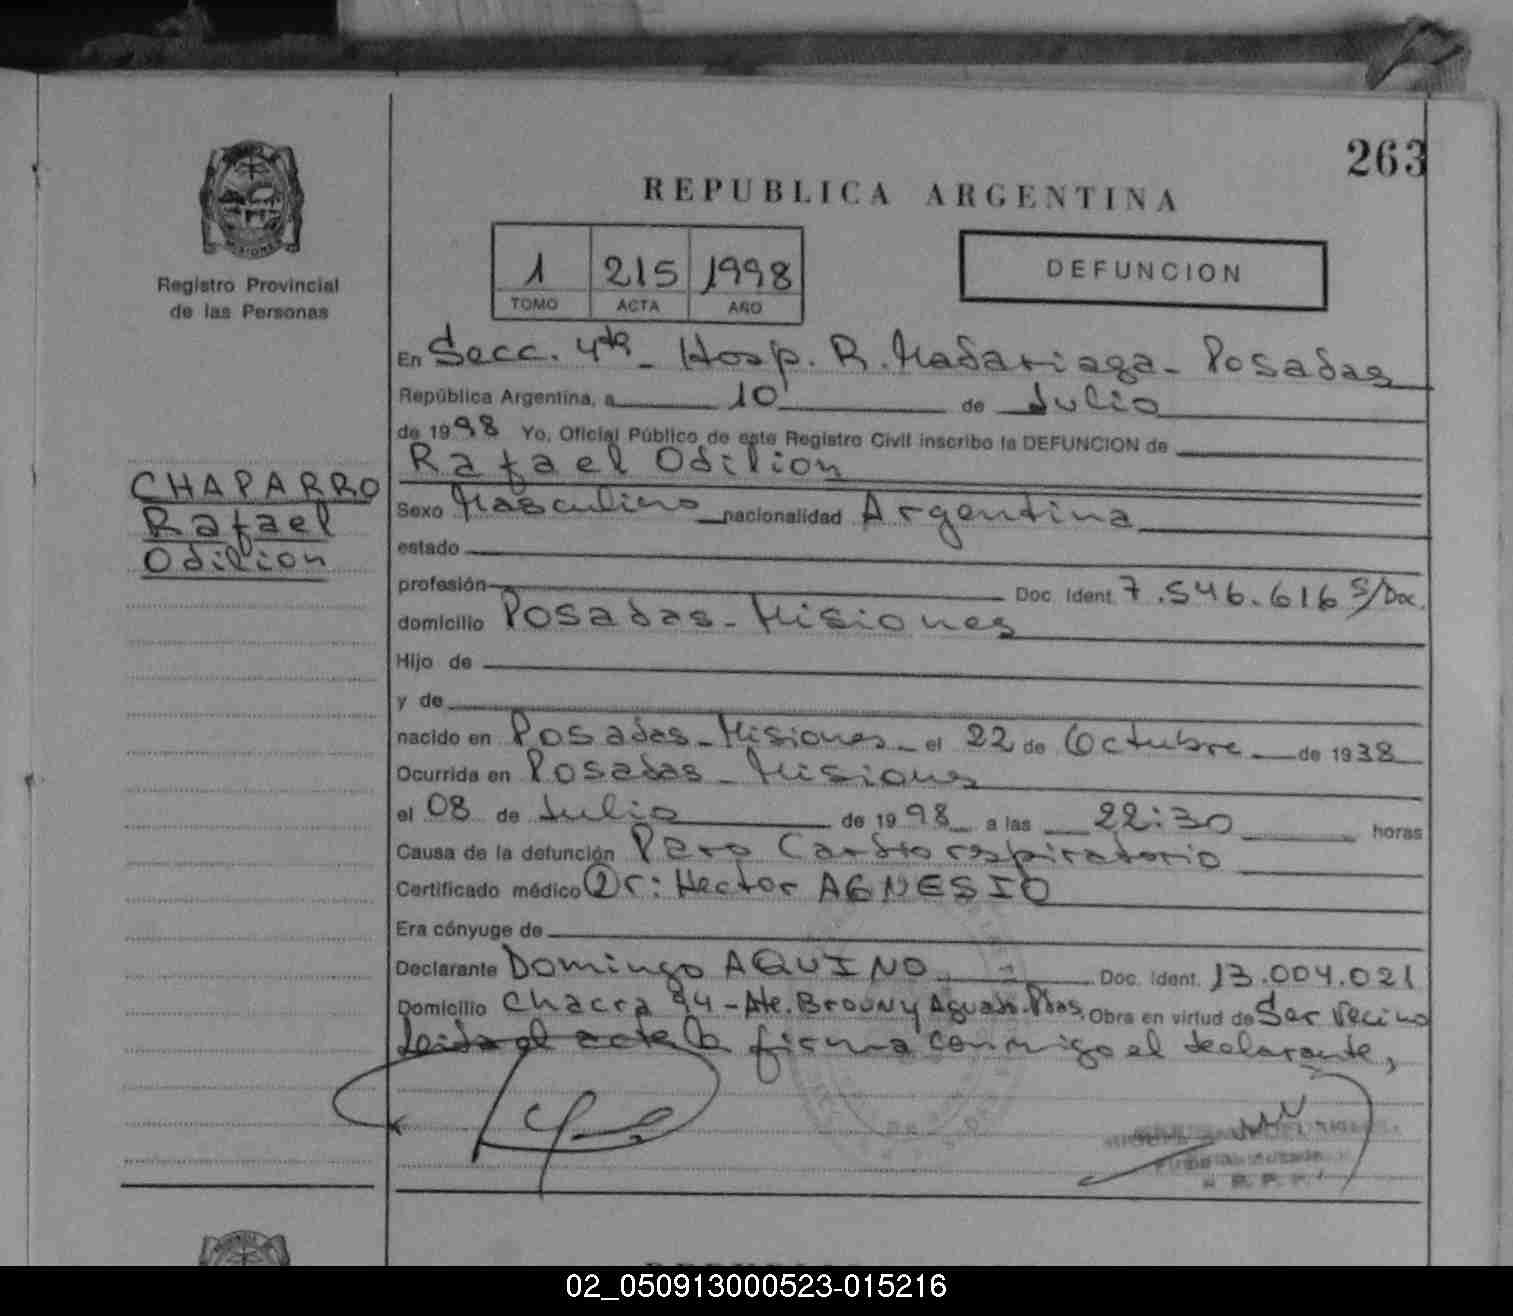 263
REPUBLICA ARGENTINA
1 215 1998
TOMO ACTA AÑO
DEFUNCION
MISIONES
Registro Provincial
de las Personas
En Secc. 4ta - Hosp. R. Madariaga - Posadas
República Argentina, a 10 de Julio
de 1998 Yo, Oficial Público de este Registro Civil inscribo la DEFUNCION de
Rafael Odilion
CHAPARRO
Rafael
Odilion
Sexo Masculino nacionalidad Argentina
estado
profesión Doc. Ident. 7.546.616 S/Doc.
domicilio Posadas - Misiones
Hijo de
y de
nacido en Posadas - Misiones - el 22 de Octubre de 1938
Ocurrida en Posadas - Misiones
el 08 de Julio de 1998 a las 22:30 horas
Causa de la defunción Paro Cardio respiratorio
Certificado médico Dr: Hector AGNESIO
Era cónyuge de
Declarante Domingo AQUINO - Doc. Ident. 13.004.021
Domicilio Chacra 94 - Ate. Brown y Aguado. Pdas. Obra en virtud de Ser Vecino
Leida el acta la firma conmigo el declarante,
02_050913000523-015216